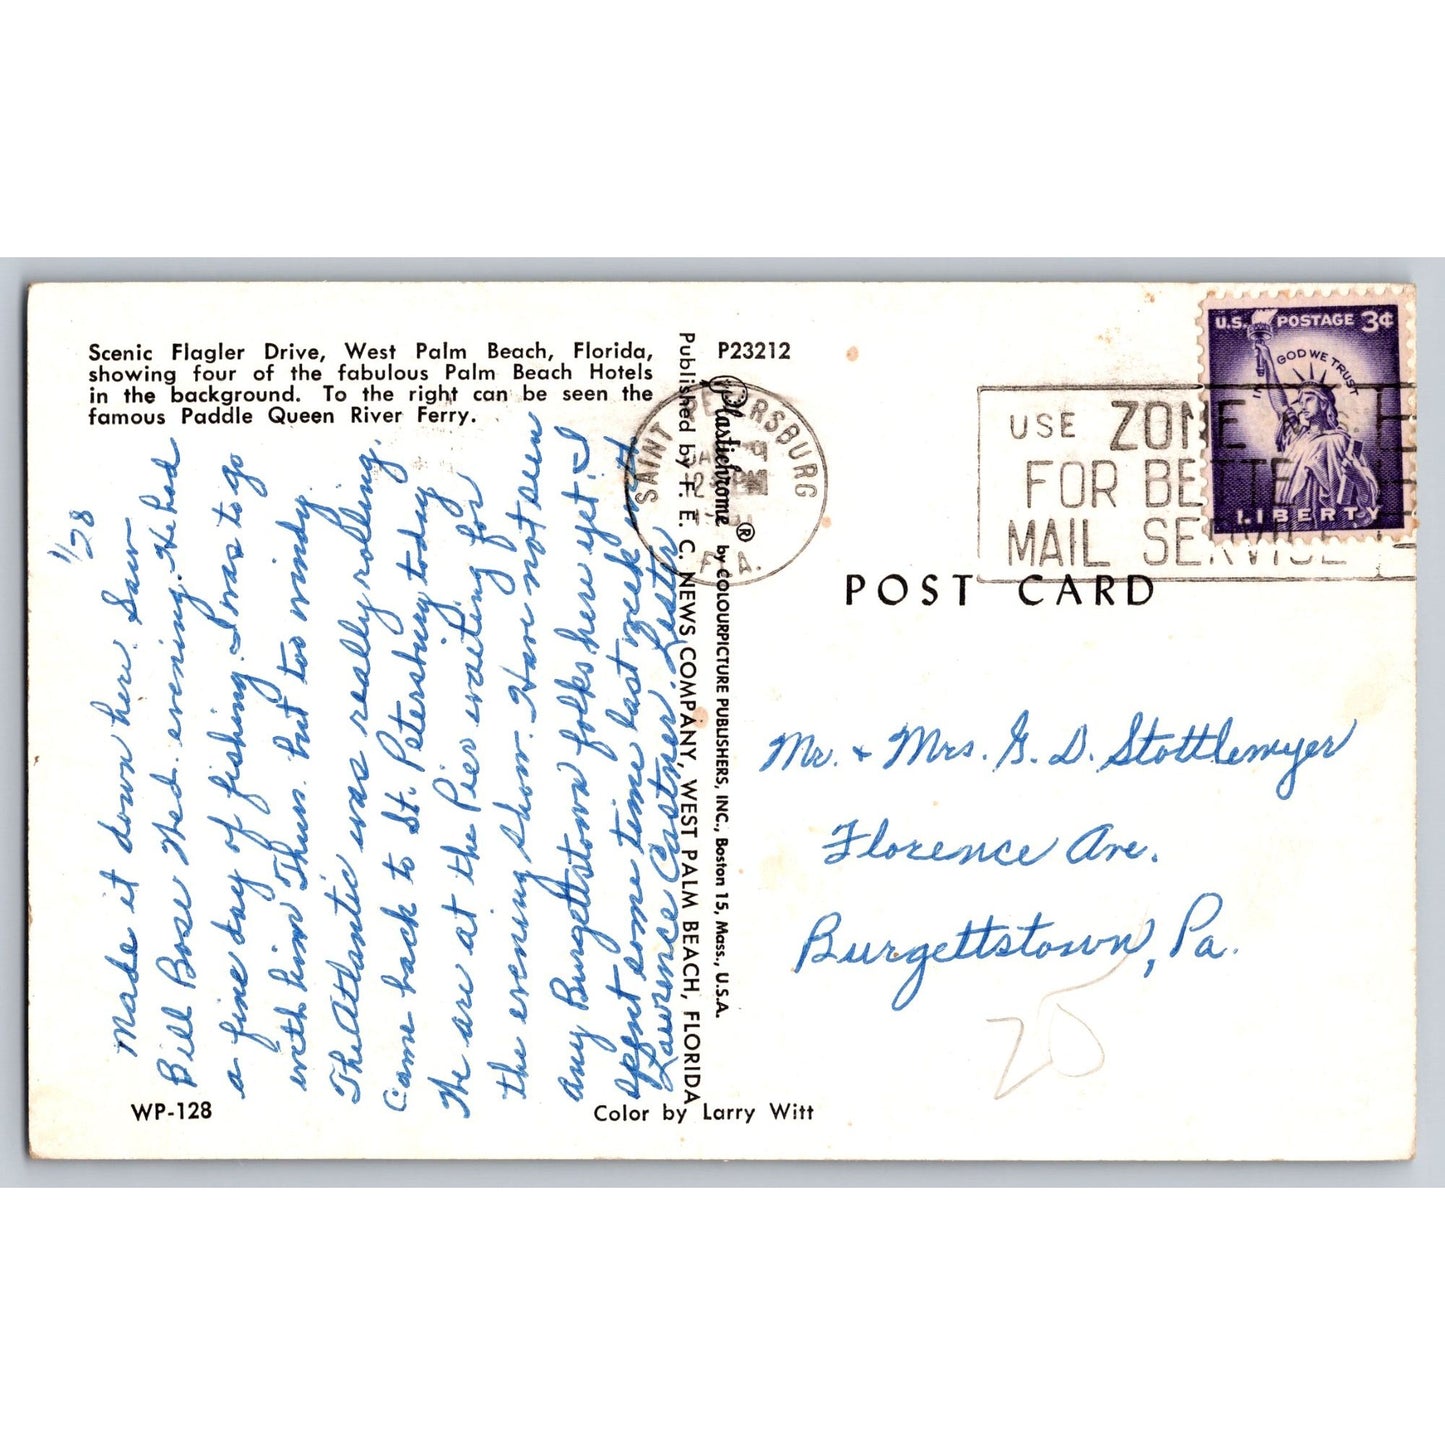 Scenic Flagler Drive, West Palm Beach, Florida,
showing four of the fabulous Palm Beach Hotels
in the background. To the right can be seen the
famous Paddle Queen River Ferry.
1/28
Made it down here. Saw
Bill Bose Wed. evening. He had
a fine day of fishing. I was to go
with him Thurs. but too windy
The Atlantic was really rolling.
Came back to St. Petersburg today
We are at the Pier waiting for
the evening show. Have not seen
any Burgettstown folks here yet. I
spent some time last week with
Lawrence
WP-128
Color by Larry Witt
Published by F. E. C. NEWS COMPANY, WEST PALM BEACH, FLORIDA
Plastichrome ® by COLOURPICTURE PUBLISHERS, INC., Boston 15, Mass., U.S.A.
P23212
SAINT PETERSBURG
FLA.
PM
USE ZONE
FOR BETTER
MAIL SERVICE
U.S. POSTAGE 3¢
IN GOD WE TRUST
LIBERTY
POST CARD
Mr. + Mrs. G. D. Stottlemyer
Florence Ave.
Burgettstown, Pa.
20